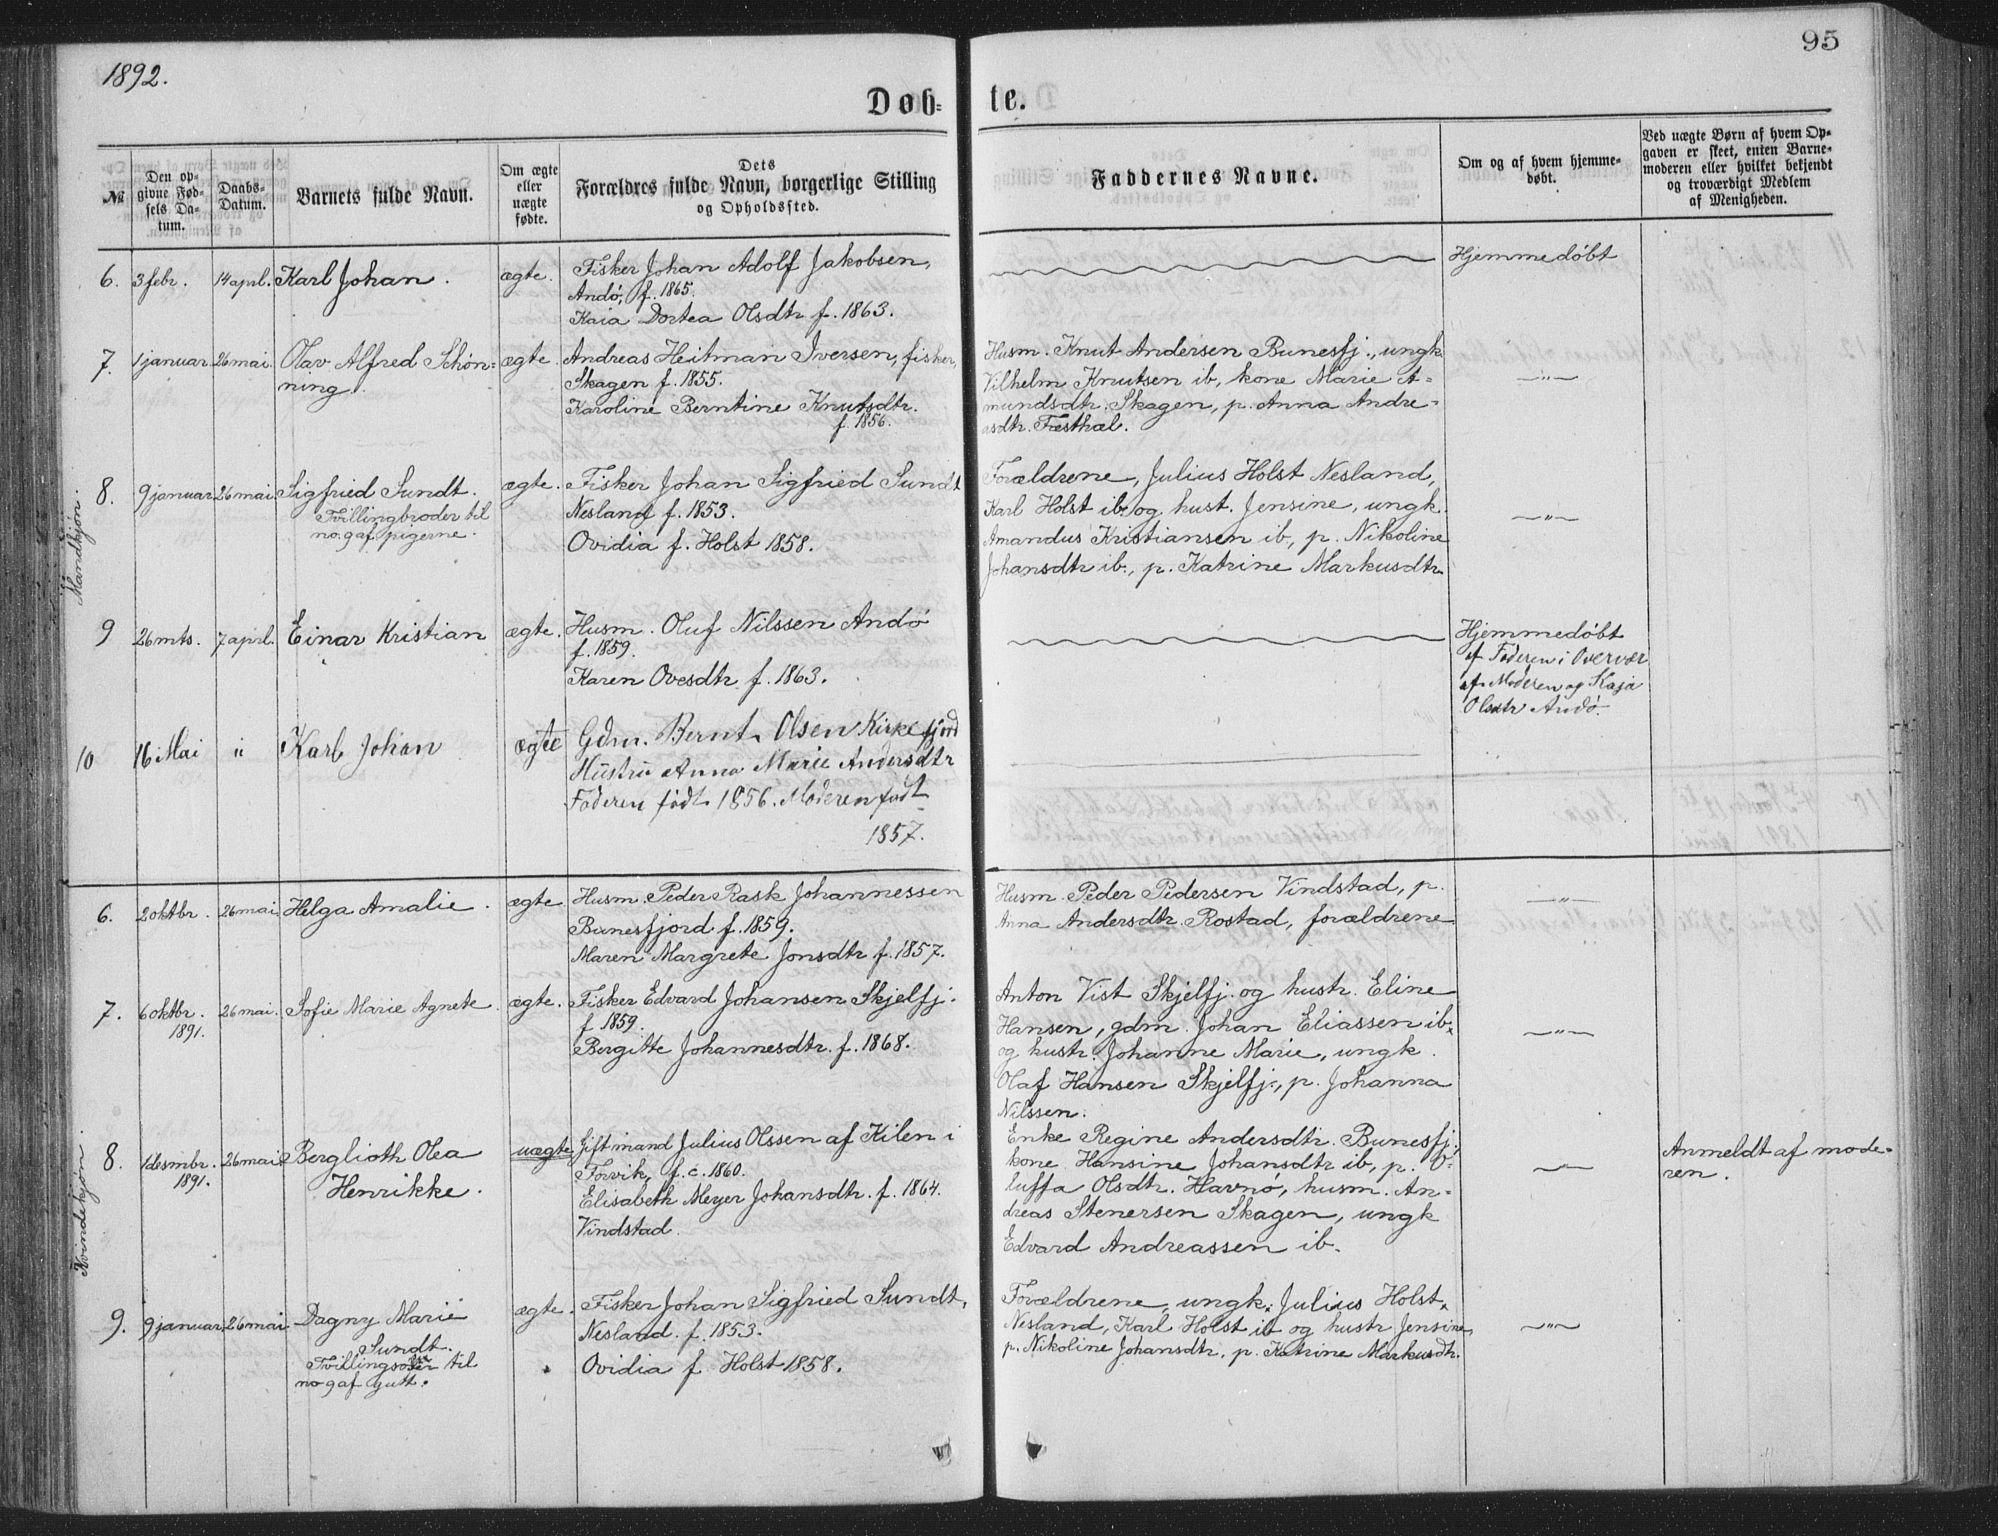 1892.
95
Døb-
te.
No
Den op-
givne Fød-
sels Da-
tum.
Daabs-
Datum.
Barnets fulde Navn.
Om ægte
eller
uægte
fødte.
Dets
Forældres fulde Navn, borgerlige Stilling
og Opholdssted.
Faddernes Navne.
Om og af hvem hjemme-
døbt.
Ved uægte Børn af hvem Op-
gaven er skeet, enten Barne-
moderen eller hvilket bekjendt
og troværdigt Medlem
af Menigheden.
Mandkjøn.
6. 3 febr. 14 aprl. Karl Johan. ægte. Fisker Johan Adolf Jakobsen,
Andø, f. 1865.
Kaia Dortea Olsdtr f. 1863.
Hjemmedøbt
7. 1 januar 26 mai. Olav Alfred Schøn-
ning.
ægte. Andreas Heitman Iversen, fisker,
Skagen f. 1855.
Karoline Berntine Knutsdtr.
f. 1856.
Husm. Knut Andersen Bunesfj., ungk
Vilhelm Knutsen ib, kone Marie A-
mundsdtr. Skagen, p. Anna Andre-
asdtr. Fæsthæl.
—"—
8. 9 januar 26 mai Sigfried Sundt.
Tvillingbroder til
no. 9 af pigerne.
ægte. Fisker Johan Sigfried Sundt
Nesland f. 1853.
Ovidia f. Holst 1858.
Forældrene, Julius Holst Nesland,
Karl Holst ib. og hust. Jensine, ungk.
Amandus Kristiansen ib, p. Nikoline
Johansdtr ib., p. Katrine Markusdtr.
—"—
9 26 mts. 7 aprl. Einar Kristian ægte. Husm. Oluf Nilssen Andø
f. 1859.
Karen Ovesdtr f. 1863.
Hjemmedøbt
af Faderen i Overvær
af Moderen og Kaja
Olsdtr Andø.
10 16 Mai " Karl Johan ægte Gdm. Bernt Olsen Kirkefjord
Hustru Anna Marie Andersdtr
Faderen født 1856. Moderen født
1857.
Kvindekjøn.
6. 2 oktbr. 26 mai Helga Amalie. ægte Husm. Peder Rask Johannessen
Bunesfjord f. 1859.
Maren Margrete Jonsdtr f. 1857.
Husm. Peder Pedersen Vindstad, p.
Anna Andersdtr. Rostad, forældrene
—"—
7. 6 oktbr. 26 mai. Sofie Marie Agnete. ægte. Fisker Edvard Johansen Skjelfj.
1891.
f 1859.
Bergitte Johannesdtr. f. 1868.
Anton Vist Skjelfj. og hustr. Eline
Hansen, gdm. Johan Eliassen ib.
og hustr. Johanne Marie, ungk.
Olaf Hansen Skjelfj., p. Johanna
Nilssen.
—"—
8. 1 desmbr. 26 mai Berglioth Olea
1891.
Henrikke.
uægte Gift mand Julius Olssen af Kilen i
Torvik, f. c. 1860.
Elisabeth Meyer Johansdtr. f. 1864.
Vindstad.
Enke Regine Andersdtr. Bunesfj.
kone Hansine Johansdtr ib, p. O-
luffa Olsdtr. Havnø, husm. An-
dreas Stenersen Skagen, ungk
Edvard Andreassen ib.
—"—
Anmeldt af mode-
ren.
9. 9 januar 26 mai Dagny Marie
Sundt.
Tvillingsøster til
no 9 af gutt.
ægte. Fisker Johan Sigfried Sundt,
Nesland. f. 1853.
Ovidia f. Holst 1858.
Forældrene, ungk. Julius Holst.
Nesland, Karl Holst ib og hustr Jensine,
p. Nikoline Johansdtr, p. Katrine Markusdtr.
—"—